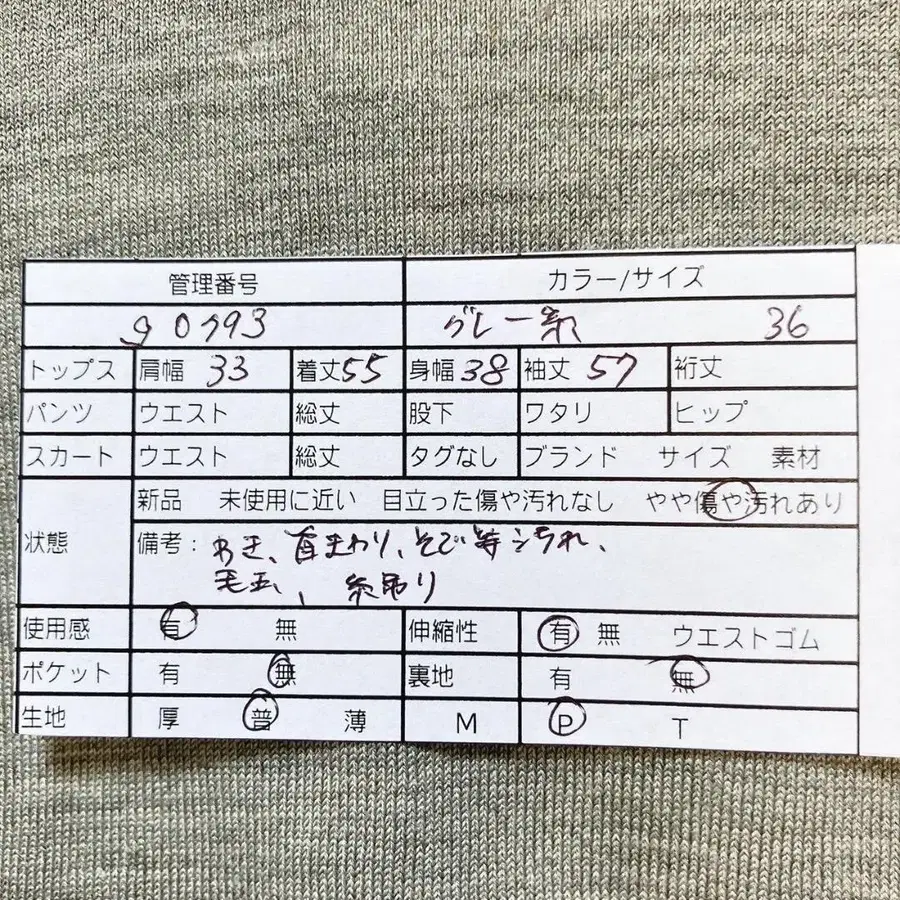 管理番号 カラー/サイズ
g0793 グレー系 36
トップス 肩幅 33 着丈 55 身幅 38 袖丈 57 裄丈
パンツ ウエスト 総丈 股下 ワタリ ヒップ
スカート ウエスト 総丈 タグなし ブランド サイズ 素材
新品 未使用に近い 目立った傷や汚れなし やや傷や汚れあり
状態 備考: わき、首まわり、そで等汚れ、
毛玉、糸吊り
使用感 有 無 伸縮性 有 無 ウエストゴム
ポケット 有 無 裏地 有 無
生地 厚 普 薄 M P T